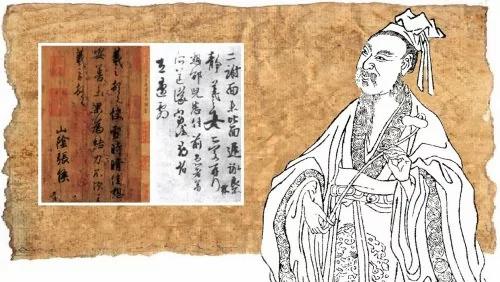 二謝面未比面遲詠良
靜羲之女愛再拜
想邵兒悉佳前患者善
羲之頓首快雪時晴佳想
安善未果為結力不次王
羲之頓首
山陰張侯